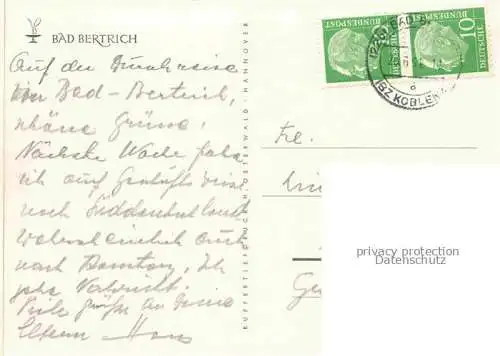 BAD BERTRICH
Auf der Durchreise
von Bad-Bertrich,
schöne Grüße!
Nächste Woche fahre
ich auf Geschäftsreise
nach Süddeutschland
wahrscheinlich auch
nach . Ich
gebe Nachricht.
Viele Grüße an Deine
Eltern Hans
RUPPERTIEFDRUCK H. OSTERWALD · HANNOVER
DEUTSCHE BUNDESPOST
DEUTSCHE BUNDESPOST
10
KOBLENZ
Frl.
privacy protection
Datenschutz